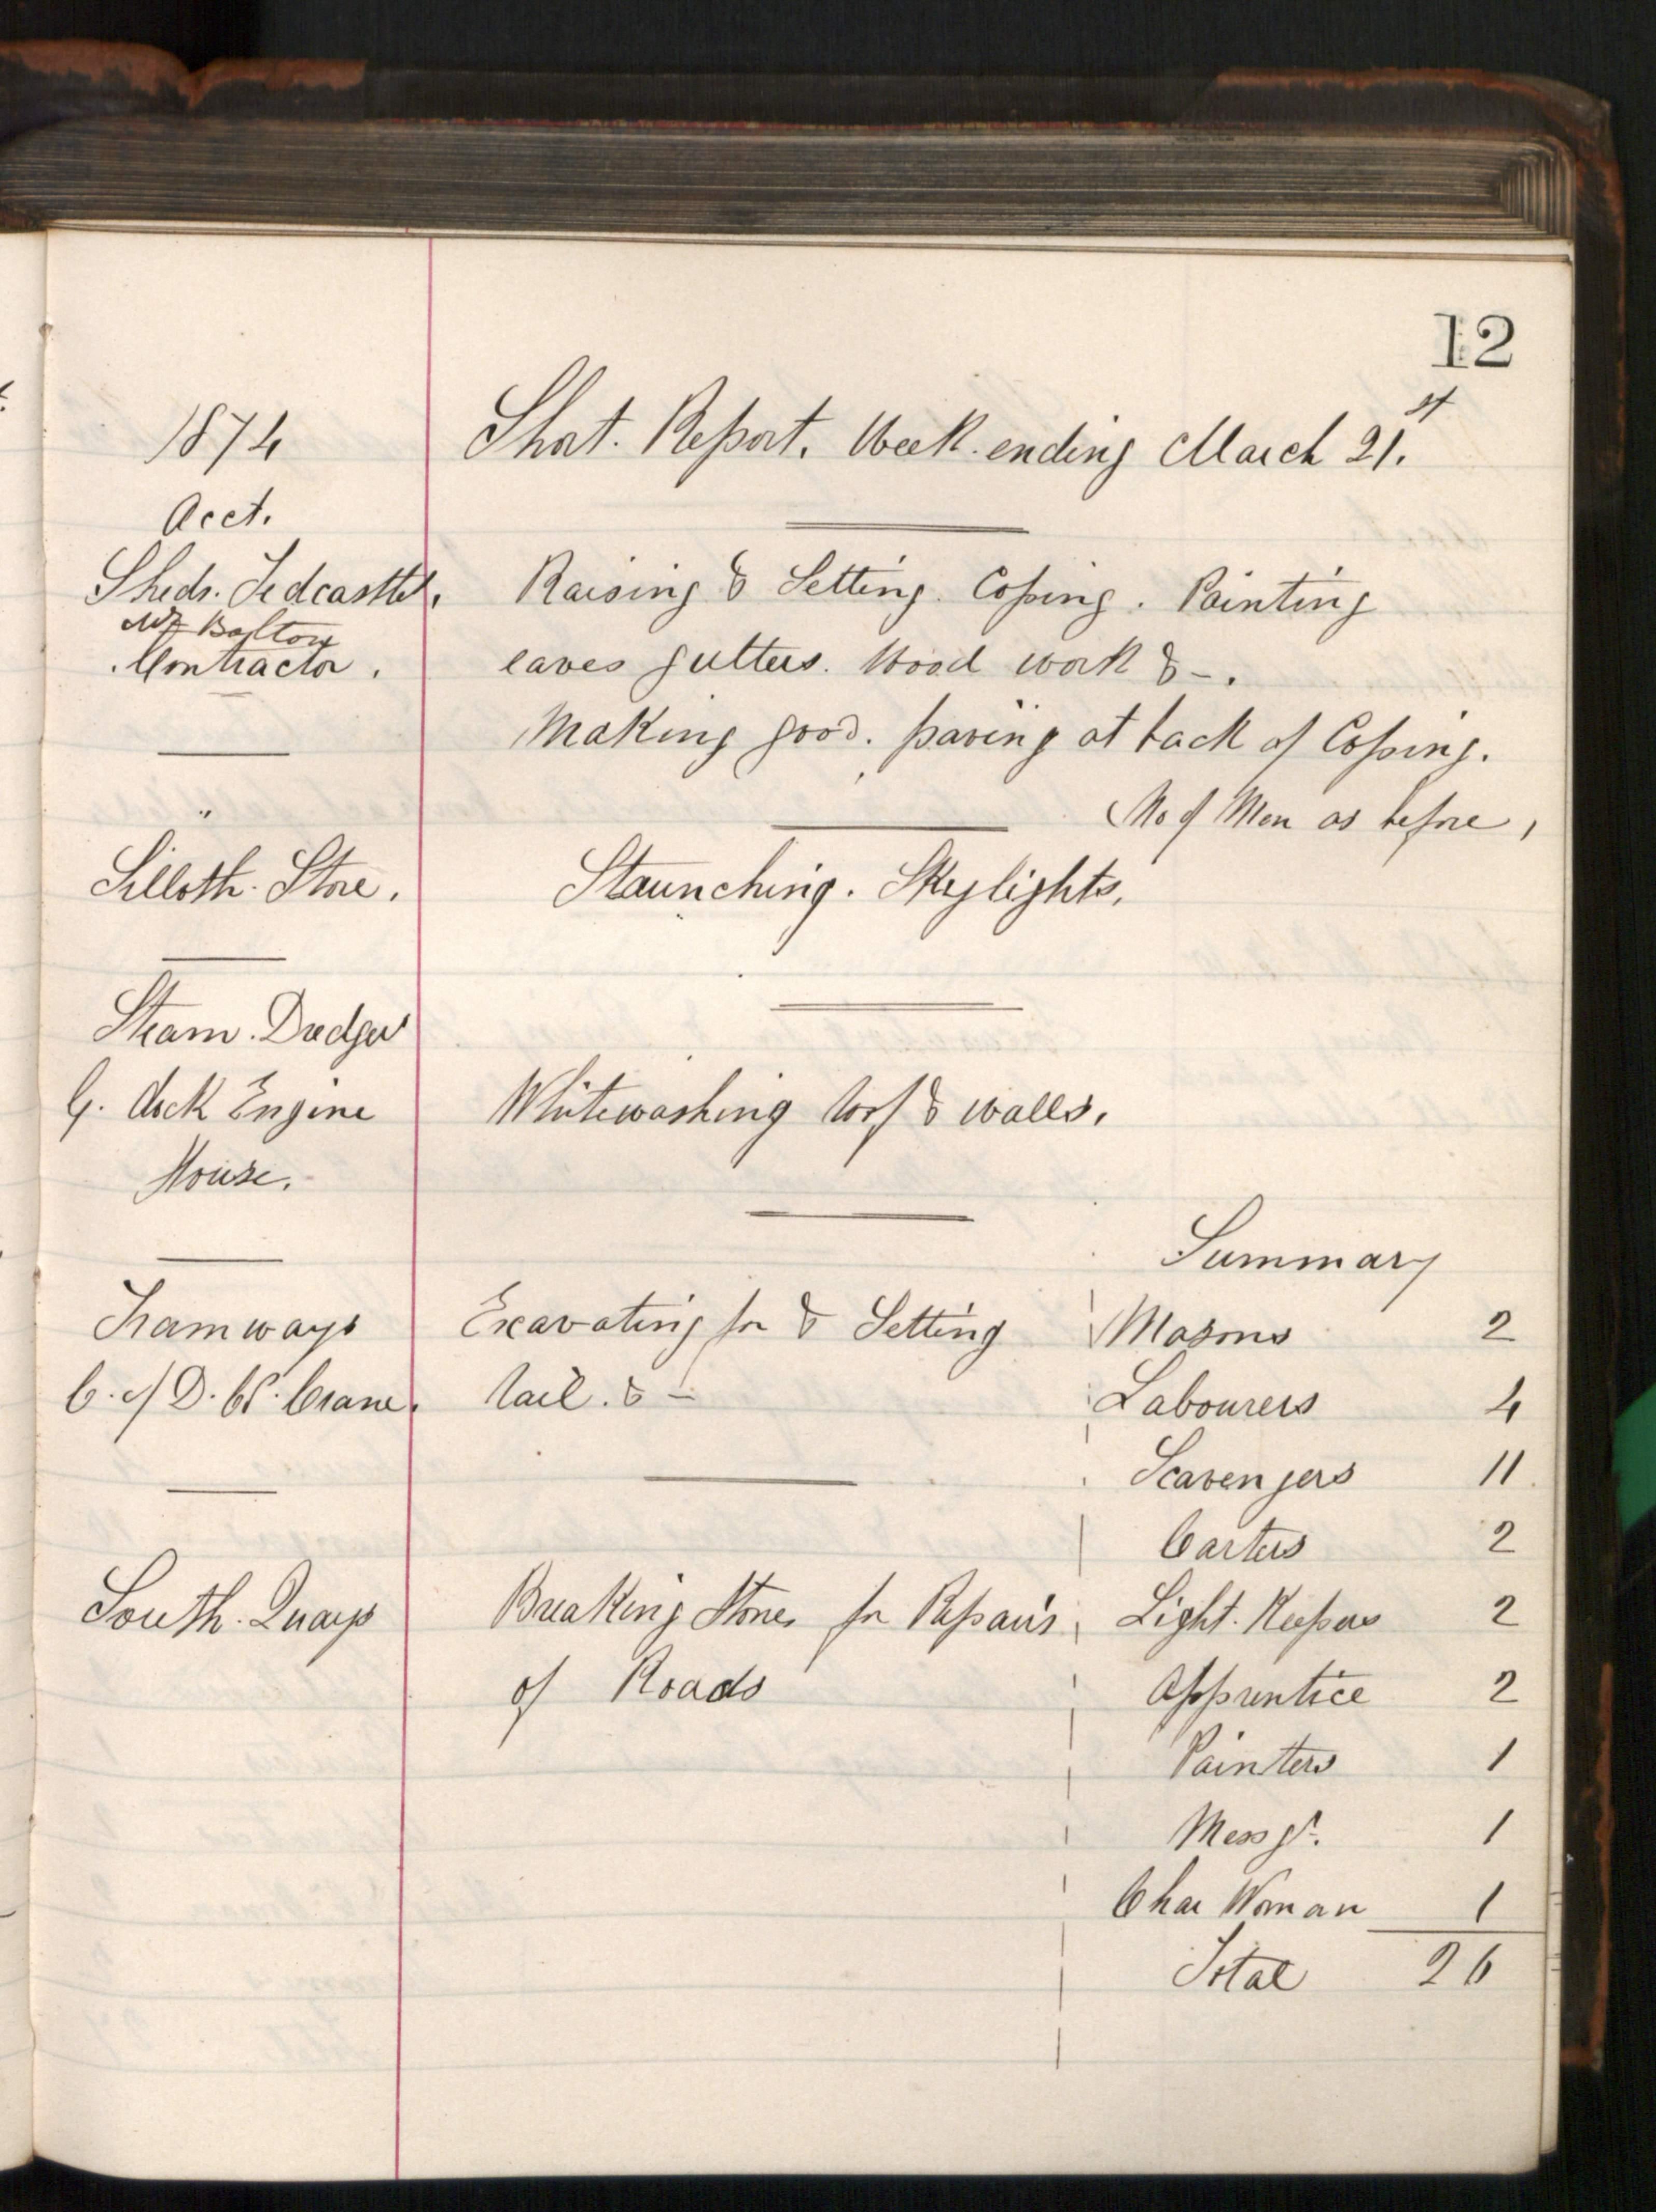 12
1874
Short. Report. Week ending March 21.st
Acct.
Sheds. Tedcastle.
Mr Bolton
Contractor.
Raising & Setting. Coping. Painting
eaves gutters. Wood work &-.
Making good. paving at back of Coping.
No of Men as before,
"
Silloth. Store.
Staunching. Skylights.
Steam. Dredger
G. dock Engine
House.
Whitewashing roof & walls.
Tramways
C. of D. W. Crane.
Excavating for & Setting
rail. & -
South. Quays
Breaking Stones for Repairs
of Roads
Summary
Masons 2
Labourers 4
Scavengers 11
Carters 2
Light. Keepers 2
Apprentice 2
Painters 1
Messgr. 1
Char Woman 1
Total 26